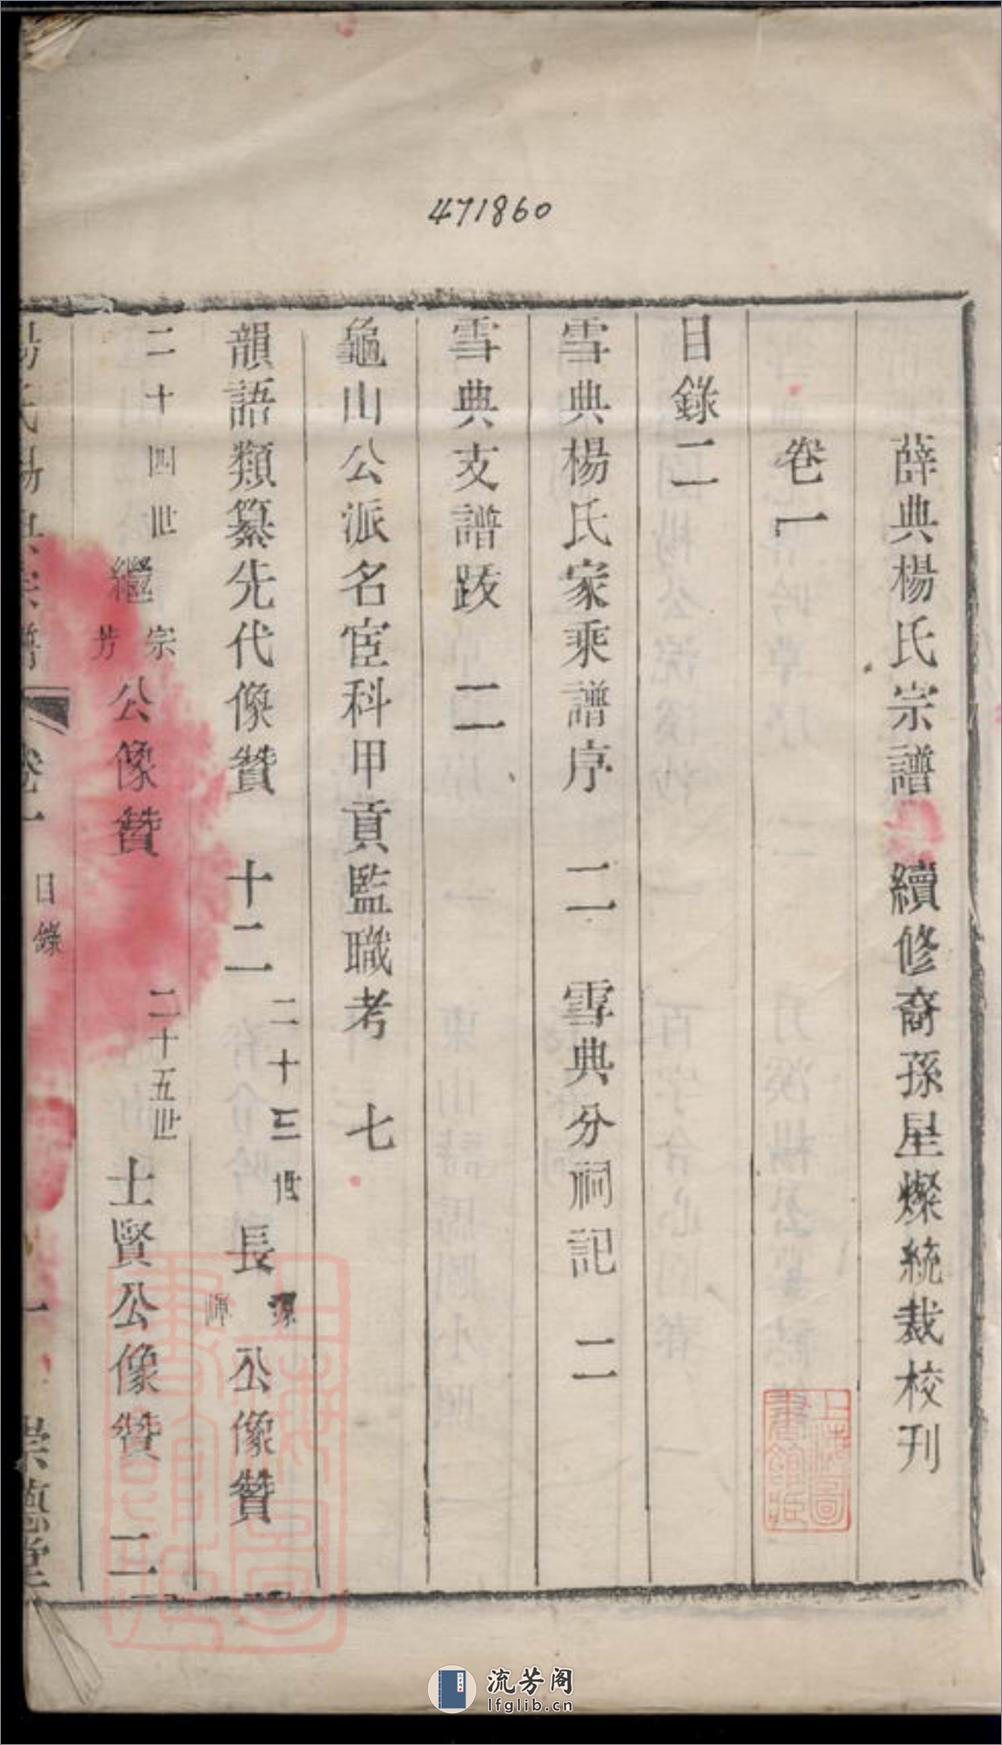 471860
薛典楊氏宗譜 續修裔孫星燦統裁校刊
卷一
目錄二
雪典楊氏家乘譜序 二 雪典分祠記 二
雪典支譜跋 二
龜山公派名宦科甲貢監職考 七
韻語類纂先代像贊 十二 二十三世長源暉公像贊
二十四世繼宗芳公像贊 二十五世士賢公像贊 二
楊氏 宗譜 卷一 目錄 一 崇德堂
上海圖書館藏
上海圖書館藏
流芳阁
lfglib.cn